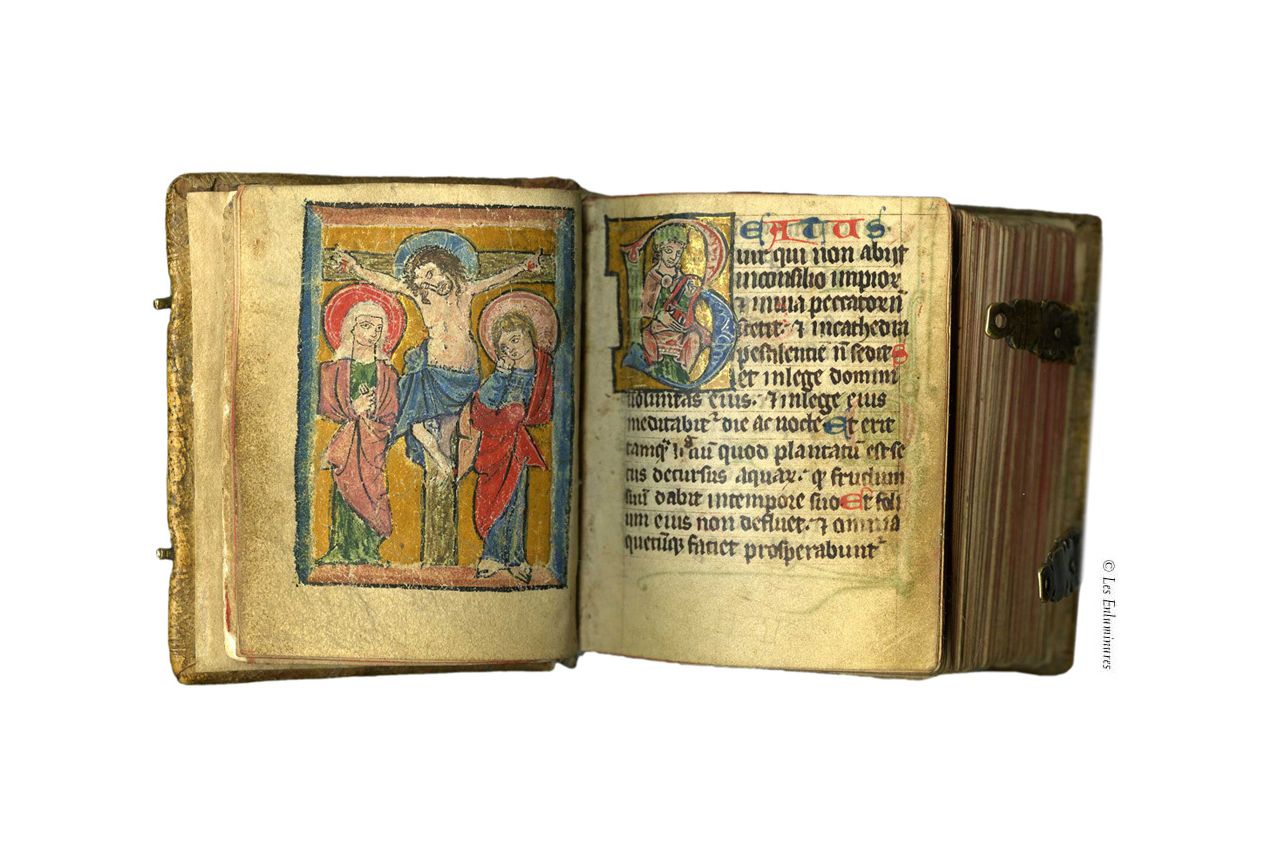 BEATUS
uir qui non abijt
in consilio impior
& in uia peccatorū
stetit· & in cathedra
pestilentie n̄ sedit S
et in lege domini
uoluntas eius· & in lege eius
meditabit᷑ die ac nocte Et erit
tamq̄ lignū quod plantatū est se
cus decursus aquar· q̄ fructum
suū dabit in tempore suo Et foli
um eius non defluet· & omnia
quecūq̧ faciet prosperabunt᷑
© Les Enluminures